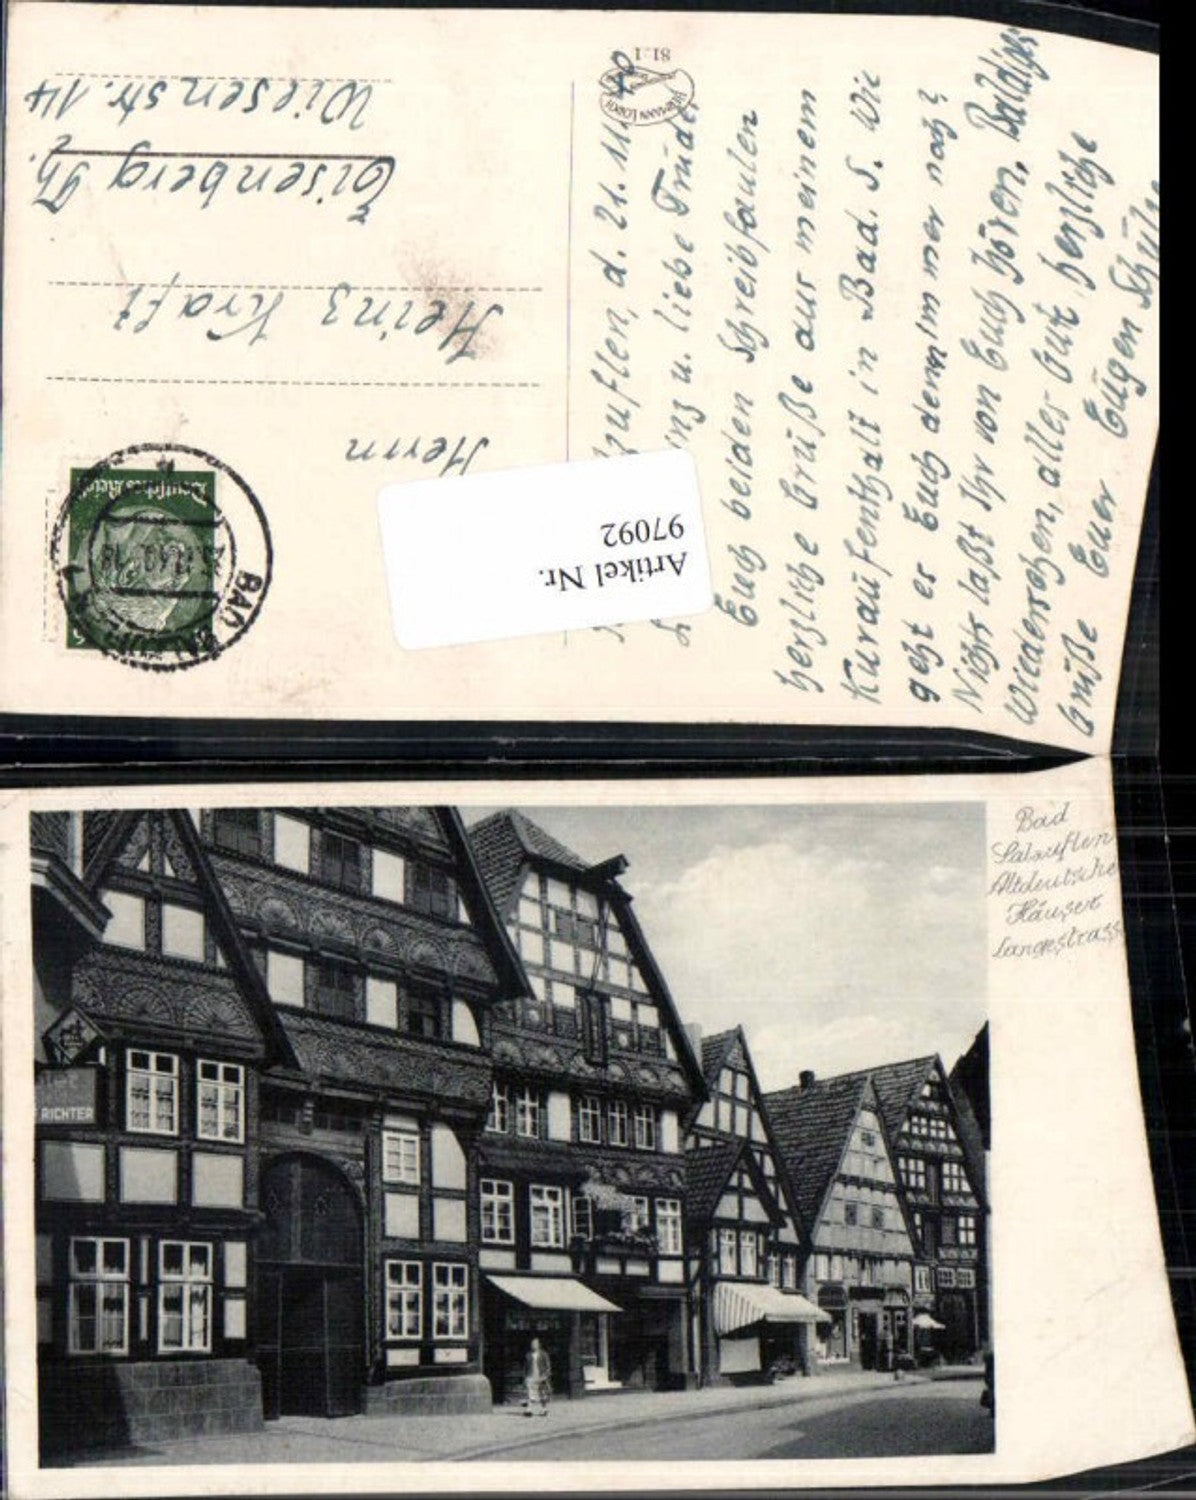 81:1
HERMANN LORCH
zuflen, d. 21.
u. liebe Trude,
Euch beiden Schreibfaulen
herzliche Grüße aus meinem
Kuraufenthalt in Bad. S. Wie
geht es Euch denn immer noch?
Nichts laßt Ihr von Euch hören. Baldiges
Wiedersehen, alles Gute herzliche
Grüße Euer Eugen
Deutsches Reich
6
BAD
Herrn
Heinz Kraft
Eisenberg Th.
Wiesenstr. 14
Artikel Nr.
97092
Bad
Salzuflen
Altdeutsche
Häuser
Langestrasse
RICHTER